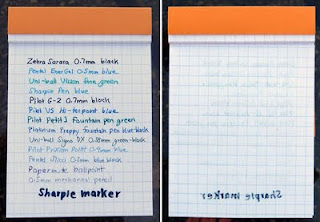 Zebra Sarasa 0.7mm black
Pentel EnerGel 0.5mm blue
Uni-ball Vision fine green
Sharpie Pen blue
Pilot G-2 0.7mm black
Pilot V5 Hi-tec point blue
Pilot Petit1 Fountain pen green
Platinum Preppy fountain pen blue-black
Uni-ball Signo DX 0.38mm green-black
Pilot Precise Point 0.7mm blue
Pentel Slicci 0.3mm blue black
Papermate ballpoint
0.5mm mechanical pencil
Sharpie marker
Sharpie marker